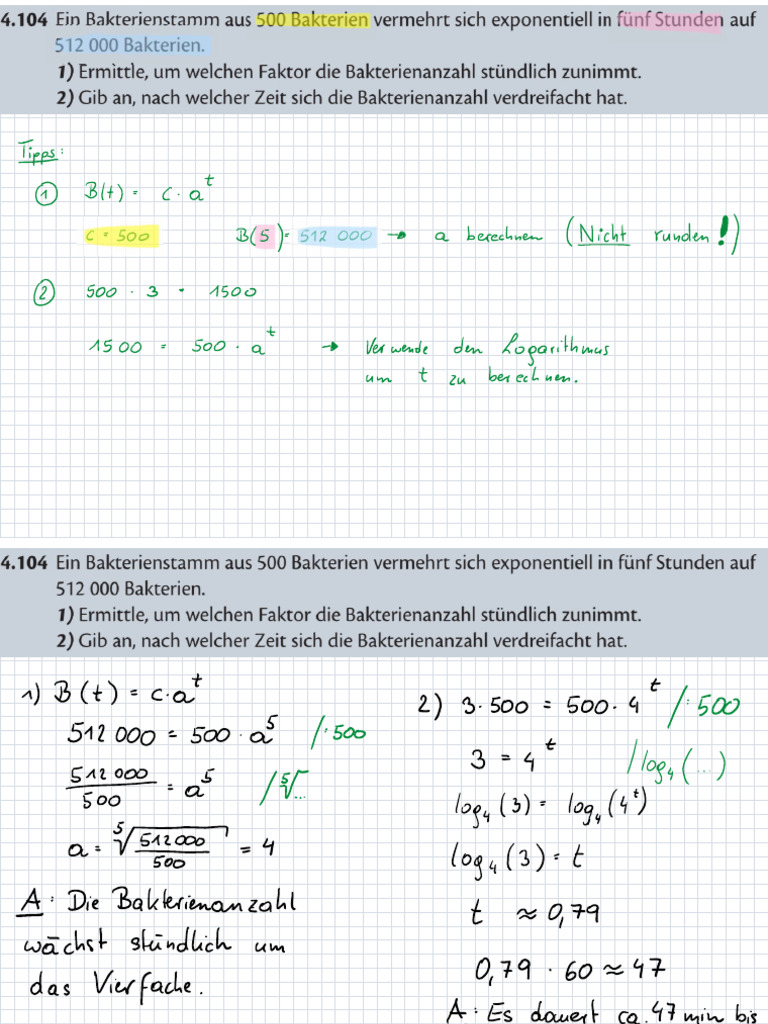 4.104 Ein Bakterienstamm aus 500 Bakterien vermehrt sich exponentiell in fünf Stunden auf
512 000 Bakterien.
1) Ermittle, um welchen Faktor die Bakterienanzahl stündlich zunimmt.
2) Gib an, nach welcher Zeit sich die Bakterienanzahl verdreifacht hat.
Tipps:
① B(t) = c · a^t
c = 500 B(5) = 512 000 → a berechnen (Nicht runden!)
② 500 · 3 = 1500
1500 = 500 · a^t → Verwende den Logarithmus
um t zu berechnen.
4.104 Ein Bakterienstamm aus 500 Bakterien vermehrt sich exponentiell in fünf Stunden auf
512 000 Bakterien.
1) Ermittle, um welchen Faktor die Bakterienanzahl stündlich zunimmt.
2) Gib an, nach welcher Zeit sich die Bakterienanzahl verdreifacht hat.
1) B(t) = c · a^t
512 000 = 500 · a^5 /:500
512 000/500 = a^5 /⁵√...
a = ⁵√(512 000/500) = 4
A: Die Bakterienanzahl
wächst stündlich um
das Vierfache.
2) 3 · 500 = 500 · 4^t /:500
3 = 4^t /log₄(...)
log₄(3) = log₄(4^t)
log₄(3) = t
t ≈ 0,79
0,79 · 60 ≈ 47
A: Es dauert ca. 47 min bis